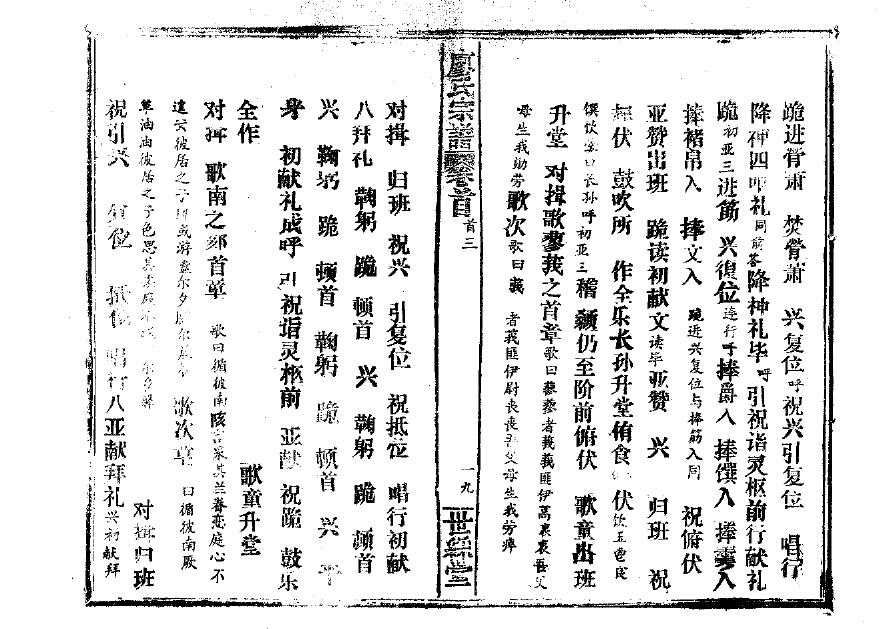 跪进膋萧 焚膋萧 兴复位呼祝兴引复位 唱行
降神四叩礼同前答降神礼毕呼引祝诣灵柩前行献礼
跪初亚三进筯 兴復位连行呼捧爵入 捧馔入 捧羹入
捧褚帛入 捧文入 跪近兴复位与捧筯入同 祝俯伏
亚赞出班 跪读初献文读毕亚赞 兴 归班 祝
俯伏 鼓吹所 作全乐长孙升堂侑食 伏
馔饮 曰长孙呼初亚三稽颡仍至阶前俯伏 歌童出班
升堂 对揖歌蓼莪之首章歌曰蓼蓼者莪莪匪伊蒿哀哀吾父
母生我劬劳歌次歌曰莪 者莪匪伊尉哀哀吾父母生我劳瘁
廖氏宗谱 卷首 首三 一九 世䌽堂
对揖 归班 祝兴 引复位 祝抵位 唱行初献
八拜礼 鞠躬 跪 顿首 兴 鞠躬 跪 顿首
兴 鞠躬 跪 顿首 鞠躬 跪 顿首 兴 平
身 初献礼成呼 引祝诣灵柩前 亚献 祝跪 鼓乐
全作 歌童升堂
对揖 歌南之 首章 歌曰循彼南陔言采其兰眷恋庭心不
遑安彼居之子 或游盘尔夕膳尔 歌次章 曰循彼南陔
草油油彼居之子色思其柔 对揖归班
祝引兴 复位 抵位 唱行八亚献拜礼兴初献拜